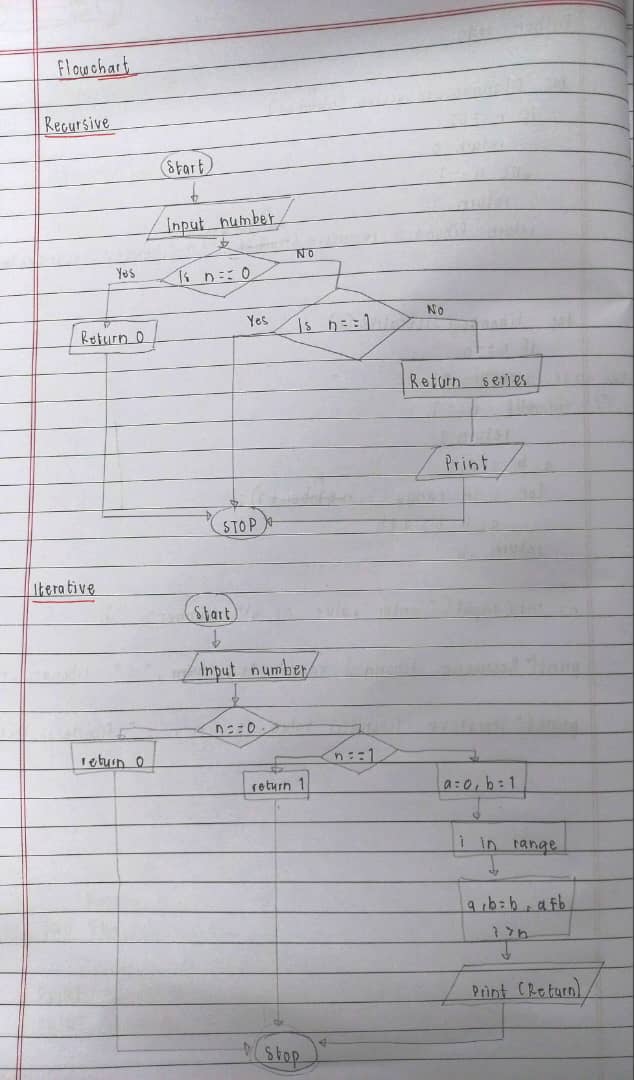 Flowchart
Recursive
Start
Input number
Is n == 0
Yes
No
Return 0
Is n==1
Yes
No
Return series
Print
STOP
Iterative
Start
Input number
n==0
return 0
n==1
return 1
a=0, b=1
i in range
a,b=b, a+b
i>n
Print (Return)
Stop